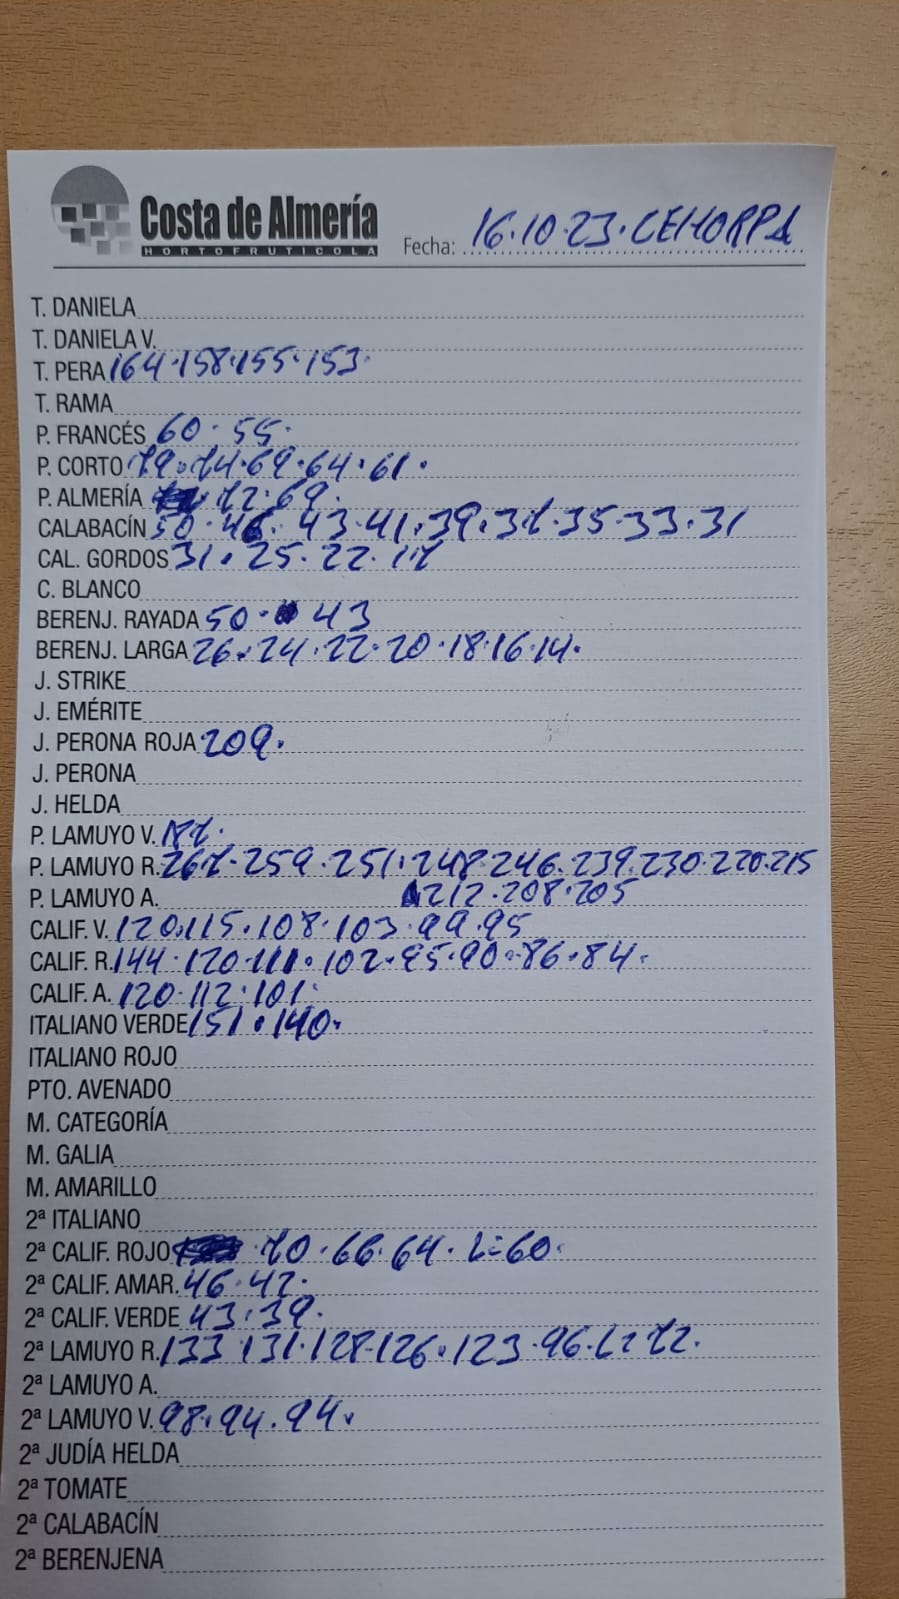 Costa de Almería
HORTOFRUTICOLA
Fecha: 16.10.23. CEHORPA
T. DANIELA
T. DANIELA V.
T. PERA 164.158.155.153.
T. RAMA
P. FRANCÉS 60. 55.
P. CORTO 79. 74. 69. 64. 61.
P. ALMERÍA 72. 69.
CALABACÍN 50. 46. 43. 41. 39. 37. 35. 33. 31
CAL. GORDOS 31. 25. 22. 17
C. BLANCO
BERENJ. RAYADA 50. 43
BERENJ. LARGA 26. 24. 22. 20. 18. 16. 14.
J. STRIKE
J. EMÉRITE
J. PERONA ROJA 209.
J. PERONA
J. HELDA
P. LAMUYO V. 187.
P. LAMUYO R. 267. 259. 251. 248. 246. 239. 230. 220. 215
P. LAMUYO A. 212. 208. 205
CALIF. V. 120. 115. 108. 103. 99. 95
CALIF. R. 144. 120. 111. 102. 95. 90. 86. 84.
CALIF. A. 120. 112. 101.
ITALIANO VERDE 151. 140.
ITALIANO ROJO
PTO. AVENADO
M. CATEGORÍA
M. GALIA
M. AMARILLO
2ª ITALIANO
2ª CALIF. ROJO 70. 66. 64. L=60.
2ª CALIF. AMAR. 46. 42.
2ª CALIF. VERDE 43. 39.
2ª LAMUYO R. 133. 131. 128. 126. 123. 96. 72.
2ª LAMUYO A.
2ª LAMUYO V. 98. 94. 94.
2ª JUDÍA HELDA
2ª TOMATE
2ª CALABACÍN
2ª BERENJENA